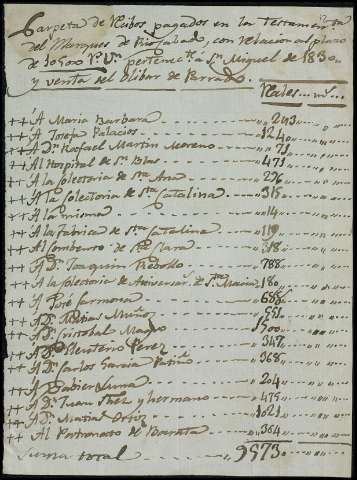 Carpeta de Recibos pagados en la Testamentª
del Marques de Rio Cabado, con relacion al plazo
de 10500 rˢ vⁿ pertenectᵉ á Sⁿ Miguel de 1830,
y venta del Olibar de Parrado.
Reales... mˢ
++ Á Maria Barbara 243
++ Á Josefa Palacios 124
++ A Dⁿ Rafael Martin Moreno 71
++ Al Hospital de Sⁿ Blas 471
++ Á la Colecturia de Stª Ana 236
++ Á la Colecturia de Stª Catalina 315
++ Á la misma 14
++ Á la fabrica de Stª Catalina 119
++ Al combento de Stª Clara 318
++ Á Dⁿ Joaquin Rebollo 788
++ A la Colecturia de Aniversarˢ de Stª Maria 180
++ Á José Carmona 688
++ A Dⁿ Matias Muñoz 551
++ A Dⁿ Cristobal Mayo 1500
++ A Dⁿ Eleuterio Perez 347
++ A Dⁿ Carlos Garcia Patiño 368
++ A Gabier Luna 204
++ A Dⁿ Juan y hermano 475
++ A Dⁿ Matias Ortiz 1021
++ Al Patronato de Barata 364
Suma total 9573